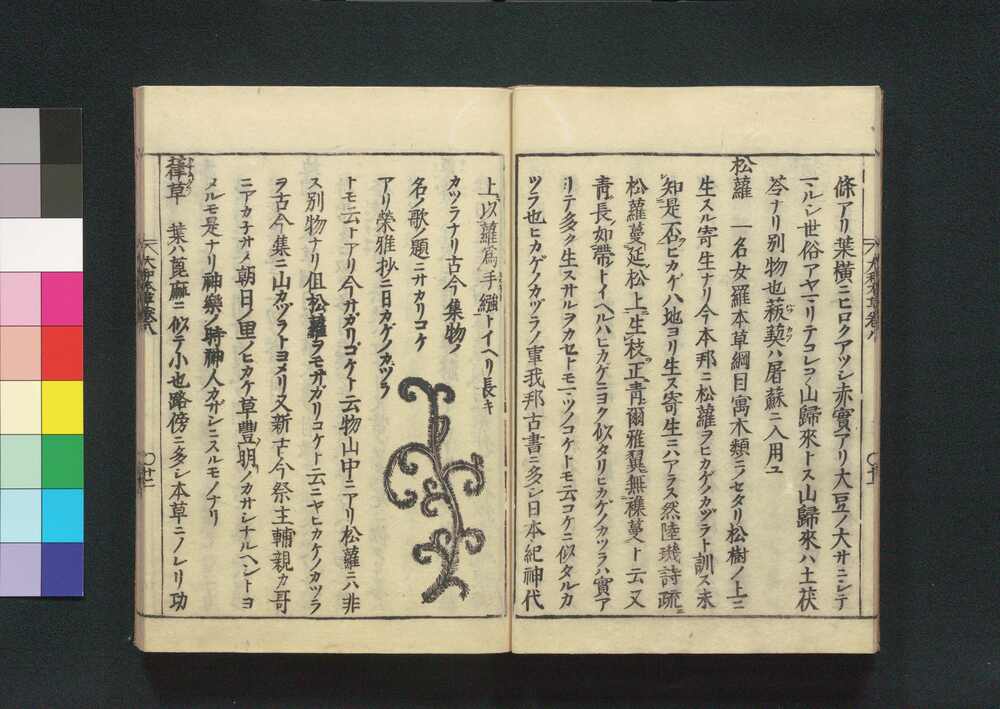 條アリ葉横ニヒロクアツシ赤實アリ大豆ノ大サニシテ
マルシ世俗アヤマリテコレヲ山歸來トス山歸來ハ土茯
苓ナリ別物也菝葜ハ屠蘇ニ入用ユ
松蘿 一名女羅本草綱目寓木類ニノセタリ松樹ノ上ニ
生スル寄生ナリ今本邦ニ松蘿ヲヒカゲノカヅラト訓ス未
知是否ヒカゲハ地ヨリ生ス寄生ニハアラス然陸璣詩疏ニ
松蘿蔓延松上生枝正青爾雅翼無襍蔓ト云又
青長如帶トイヘルハヒカゲニヨク似タリヒカゲノカツラハ實ア
リテ多ク生スサルヲカセトモ一ツノコケトモ云コケニ似タルカ
ツラ也ヒカゲノカヅラノ事我邦古書ニ多シ日本紀神代
上ニ以蘿爲手繦トイヘリ長キ
カツラナリ古今集物ノ
名ノ歌ノ題ニサカリコケ
アリ榮雅抄ニ日カゲノカヅラ
トモ云トアリ今サガリゴケト云物山中ニアリ松蘿ニハ非
ス別物ナリ但松蘿ヲモサガリコケト云ニヤヒカケノカツラ
ヲ古今集ニ山カヅラトヨメリ又新古今祭主輔親カ哥
ニアカ子サス朝日ノ里ノヒカケ草豐明ノカサシナルヘシトヨ
メルモ是ナリ神樂ノ時神人カザシニスルモノナリ
葎草 葉ハ蓖麻ニ似テ小也路傍ニ多シ本草ニノレリ功